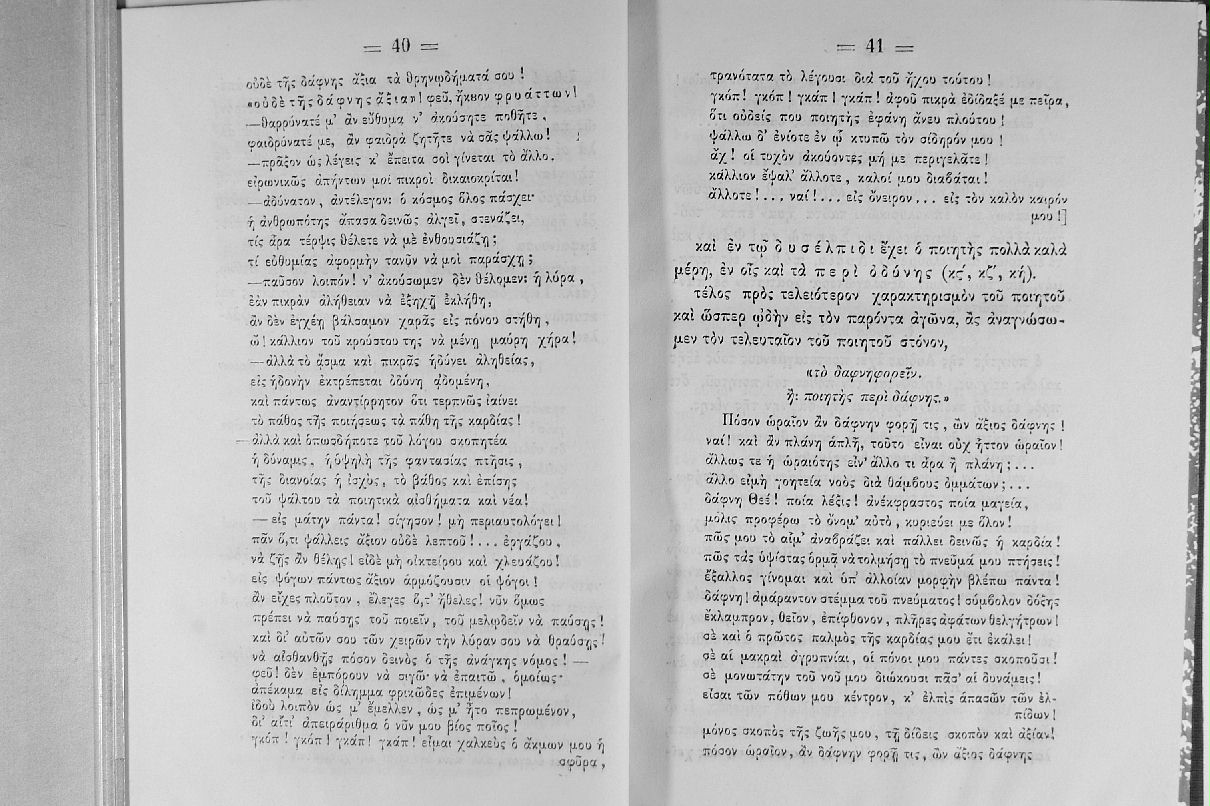 = 40 =
οὐδὲ τῆς δάφνης ἄξια τὰ θρηνῳδήματά σου!
«οὐδὲ τῆς δάφνης ἄξια»! φεῦ, ἤκουον φρυάττων!
—θαρρύνατέ μ' ἂν εὔθυμα ν' ἀκούσητε ποθῆτε,
φαιδρύνατέ με, ἂν φαιδρὰ ζητῆτε νὰ σᾶς ψάλλω!
—πρᾶξον ὡς λέγεις κ' ἔπειτα σοὶ γίνεται τὸ ἄλλο.
εἰρωνικῶς ἀπήντων μοὶ πικροὶ δικαιοκρίται!
—ἀδύνατον, ἀντέλεγον: ὁ κόσμος ὅλος πάσχει·
ἡ ἀνθρωπότης ἅπασα δεινῶς ἀλγεῖ, στενάζει,
τίς ἄρα τέρψις θέλετε νὰ μὲ ἐνθουσιάζῃ;
τί εὐθυμίας ἀφορμὴν τανῦν νὰ μοὶ παράσχῃ;
—παῦσον λοιπόν! ν' ἀκούσωμεν δὲν θέλομεν: ἡ λύρα,
ἐὰν πικρὰν ἀλήθειαν νὰ ἐξηχῇ ἐκλήθη,
ἂν δὲν ἐγχέῃ βάλσαμον χαρᾶς εἰς πόνου στήθη,
ὤ! κάλλιον τοῦ κρούστου της νὰ μένῃ μαύρη χήρα!
—ἀλλὰ τὸ ᾆσμα καὶ πικρᾶς ἡδύνει ἀληθείας,
εἰς ἡδονὴν ἐκτρέπεται ὀδύνη ᾀδομένη,
καὶ πάντως ἀναντίρρητον ὅτι τερπνῶς ἰαίνει
τὸ πάθος τῆς ποιήσεως τὰ πάθη τῆς καρδίας!
—ἀλλὰ καὶ ὁπωσδήποτε τοῦ λόγου σκοπητέα
ἡ δύναμις, ἡ ὑψηλὴ τῆς φαντασίας πτῆσις,
τῆς διανοίας ἡ ἰσχὺς, τὸ βάθος καὶ ἐπίσης
τοῦ ψάλτου τὰ ποιητικὰ αἰσθήματα καὶ νέα!
—εἰς μάτην πάντα! σίγησον! μὴ περιαυτολόγει!
πᾶν ὅ,τι ψάλλεις ἄξιον οὐδὲ λεπτοῦ!... ἐργάζου,
νὰ ζῇς ἂν θέλῃς! εἰδὲ μὴ οἰκτείρου καὶ χλευάζου!
εἰς ψόγων πάντως ἄξιον ἁρμόζουσιν οἱ ψόγοι!
ἂν εἶχες πλοῦτον, ἔλεγες ὅ,τ' ἤθελες! νῦν ὅμως
πρέπει νὰ παύσῃς τοῦ ποιεῖν, τοῦ μελῳδεῖν νὰ παύσῃς!
καὶ δι' αὐτῶν σου τῶν χειρῶν τὴν λύραν σου νὰ θραύσῃς!
νὰ αἰσθανθῇς πόσον δεινὸς ὁ τῆς ἀνάγκης νόμος! —
φεῦ! δὲν ἐμπόρουν νὰ σιγῶ· νὰ ἐπαιτῶ, ὁμοίως·
ἀπέκαμα εἰς δίλημμα φρικῶδες ἐπιμένων!
ἰδοὺ λοιπὸν ὡς μ' ἔμελλεν, ὡς μ' ἦτο πεπρωμένον,
δι' αἴτι' ἀπειράριθμα ὁ νῦν μου βίος ποῖος!
γκόπ! γκόπ! γκάπ! γκάπ! εἶμαι χαλκεὺς ὁ ἄκμων μου ἡ
σφῦρα,
= 41 =
τρανότατα τὸ λέγουσι διὰ τοῦ ἤχου τούτου!
γκόπ! γκόπ! γκάπ! γκάπ! ἀφοῦ πικρὰ ἐδίδαξέ με πεῖρα,
ὅτι οὐδεὶς που ποιητὴς ἐφάνη ἄνευ πλούτου!
ψάλλω δ' ἐνίοτε ἐν ᾧ κτυπῶ τὸν σίδηρόν μου!
ἄχ! οἱ τυχὸν ἀκούοντες μή με περιγελᾶτε!
κάλλιον ἔψαλ' ἄλλοτε, καλοί μου διαβάται!
ἄλλοτε!..., ναί!... εἰς ὄνειρον... εἰς τὸν καλὸν καιρόν
μου!]
καὶ ἐν τῷ δυσέλπιδι ἔχει ὁ ποιητὴς πολλὰ καλὰ
μέρη, ἐν οἷς καὶ τὰ περὶ ὀδύνης (κς', κζ', κή).
τέλος πρὸς τελειότερον χαρακτηρισμὸν τοῦ ποιητοῦ
καὶ ὥσπερ ᾠδὴν εἰς τὸν παρόντα ἀγῶνα, ἂς ἀναγνώσω-
μεν τὸν τελευταῖον τοῦ ποιητοῦ στόνον,
«τὸ δαφνηφορεῖν.
ἤ: ποιητὴς περὶ δάφνης.»
Πόσον ὡραῖον ἂν δάφνην φορῇ τις, ὢν ἄξιος δάφνης!
ναί! καὶ ἂν πλάνη ἁπλῆ, τοῦτο εἶναι οὐχ ἧττον ὡραῖον!
ἄλλως τε ἡ ὡραιότης εἰν' ἄλλο τι ἄρα ἢ πλάνη;...
ἄλλο εἰμὴ γοητεία νοὸς διὰ θάμβους ὀμμάτων;...
δάφνη Θεέ! ποία λέξις! ἀνέκφραστος ποία μαγεία,
μόλις προφέρω τὸ ὄνομ' αὐτὸ, κυριεύει με ὅλον!
πῶς μου τὸ αἷμ' ἀναβράζει καὶ πάλλει δεινῶς ἡ καρδία!
πῶς τὰς ὑψίστας ὁρμᾷ νὰ τολμήσῃ τὸ πνεῦμά μου πτήσεις!
ἔξαλλος γίνομαι καὶ ὑπ' ἀλλοίαν μορφὴν βλέπω πάντα!
δάφνη! ἀμάραντον στέμμα τοῦ πνεύματος! σύμβολον δόξης
ἔκλαμπρον, θεῖον, ἐπίφθονον, πλῆρες ἀφάτων θελγήτρων!
σὲ καὶ ὁ πρῶτος παλμὸς τῆς καρδίας μου ἔτι ἐκάλει!
σὲ αἱ μακραὶ ἀγρυπνίαι, οἱ πόνοι μου πάντες σκοποῦσι!
σὲ μονωτάτην τοῦ νοῦ μου διώκουσι πᾶσ' αἱ δυνάμεις!
εἶσαι τῶν πόθων μου κέντρον, κ' ἐλπὶς ἁπασῶν τῶν ἐλ-
πίδων!
μόνος σκοπὸς τῆς ζωῆς μου, τῇ δίδεις σκοπὸν καὶ ἀξίαν!
πόσον ὡραῖον, ἂν δάφνην φορῇ τις, ὢν ἄξιος δάφνης